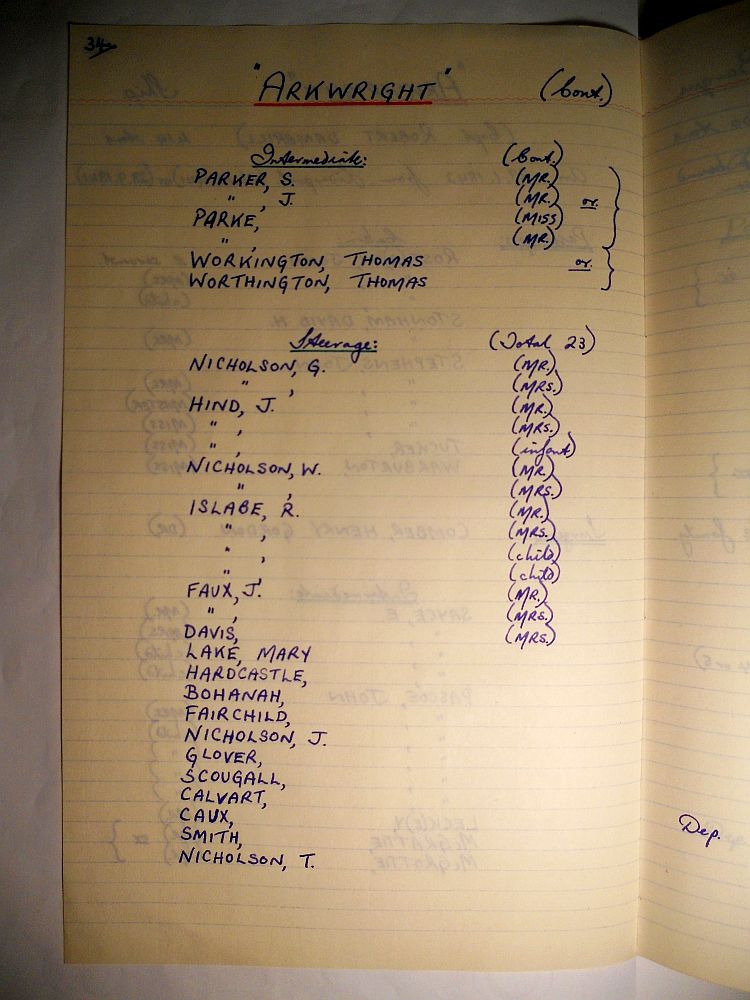 34
"ARKWRIGHT" (Cont.)
Intermediate: (Cont.)
PARKER, S. (MR.)
" , J. (MR.) or.
PARKE, (MISS)
" , (MR.)
WORKINGTON, THOMAS or.
WORTHINGTON, THOMAS
Steerage: (Total 23)
NICHOLSON, G. (MR.)
" , (MRS.)
HIND, J. (MR.)
" , (MRS.)
" , (infant)
NICHOLSON, W. (MR.)
" , (MRS.)
ISLABE, R. (MR.)
" , (MRS.)
" , (child)
" , (child)
FAUX, J. (MR.)
" , (MRS.)
DAVIS, (MRS.)
LAKE, MARY
HARDCASTLE,
BOHANAH,
FAIRCHILD,
NICHOLSON, J.
GLOVER,
SCOUGALL,
CALVART,
CAUX,
SMITH,
NICHOLSON, T.
Dep.